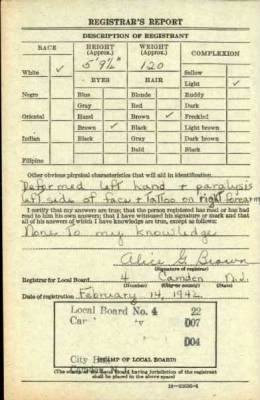 REGISTRAR'S REPORT
DESCRIPTION OF REGISTRANT
RACE
HEIGHT (Approx.)
WEIGHT (Approx.)
COMPLEXION
5' 9½"
120
White ✓
EYES
HAIR
Sallow
Light ✓
Negro
Blue
Blonde
Ruddy
Gray
Red
Dark
Oriental
Hazel
Brown ✓
Freckled
Brown ✓
Black
Light brown
Indian
Black
Gray
Dark brown
Bald
Black
Filipino
Other obvious physical characteristics that will aid in identification
Deformed left hand + paralysis
left side of face + tattoo on right forearm
I certify that my answers are true; that the person registered has read or has had
read to him his own answers; that I have witnessed his signature or mark and that
all of his answers of which I have knowledge are true, except as follows:
None to my knowledge
Alice G. Brown
(Signature of registrar)
Registrar for Local Board 4 Camden N.J.
(Number) (City or county) (State)
Date of registration February 14, 1942
Local Board No. 4 22
Cam y 007
004
City Hall
Camden, N. J.
(STAMP OF LOCAL BOARD)
(The stamp of the Local Board having jurisdiction of the registrant
shall be placed in the above space)